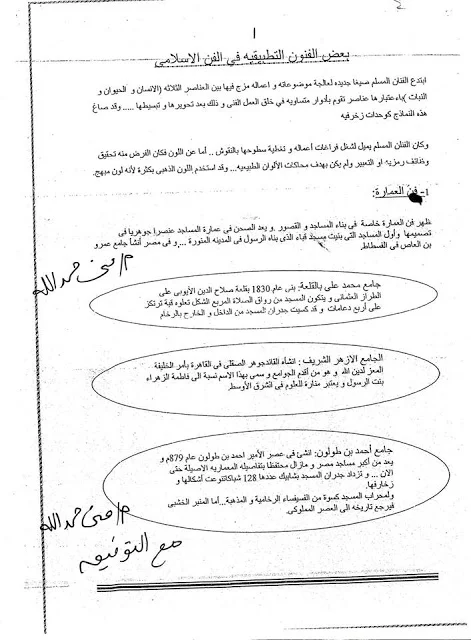 1
بعض الفنون التطبيقيه في الفن الاسلامى
ابتدع الفنان المسلم صيغا جديده لمعالجة موضوعاته و اعماله مزج فيها بين العناصر الثلاثه (الانسان و الحيوان و
النبات )باعتبارها عناصر تقوم بأدوار متساويه في خلق العمل الفنى و ذلك بعد تحويرها و تبسيطها ..... وقد صاغ
هذه النماذج كوحدات زخرفيه
وكان الفنان المسلم يميل لشغل فراغات أعماله و تغطية سطوحها بالنقوش .. أما عن اللون فكان الغرض منه تحقيق
وظائف رمزيه او التعبير ولم يكن بهدف محاكاة الألوان الطبيعيه... وقد استخدم اللون الذهبى بكثرة لأنه لون مبهج.
1- فن العمارة:
ظهر فن العمارة خاصة في بناء المساجد و القصور و يعد الصحن في عمارة المساجد عنصرا جوهريا في
تصميمها وأول المساجد التى بنيت مسجد قباء الذى بناه الرسول في المدينه المنورة ...و في مصر أنشأ جامع عمرو
بن العاص في الفسطاط
م/منى حمدالله
جامع محمد على بالقلعة: بنى عام 1830 بقلعة صلاح الدين الأيوبى على
الطراز العثمانى و يتكون المسجد من رواق الصلاة المربع الشكل تعلوه قبة ترتكز
على أربع دعامات و قد كسيت جدران المسجد من الداخل و الخارج بالرخام
الجامع الازهر الشريف: انشأه القائدجوهر الصقلى في القاهرة بأمر الخليفة
المعز لدين الله و هو من أقدم الجوامع و سمى بهذا الاسم نسبة الى فاطمة الزهراء
بنت الرسول و يعتبر منارة للعلوم في الشرق الأوسط
جامع أحمد بن طولون: انشئ في عصر الأمير احمد بن طولون عام 879م و
يعد من أكبر مساجد مصر و مازال محتفظا بتفاصيله المعماريه الاصيلة حتى
الان ... و تزداد جدران المسجد بشبابيك عددها 128 شباكاتنوعت أشكالها و
زخارفها.
ولمحراب المسجد كسوة من الفسيفساء الرخامية و المذهبة...أما المنبر الخشبى
فيرجع تاريخه الى العصر المملوكى.
م/منى حمدالله
مع التوفيق